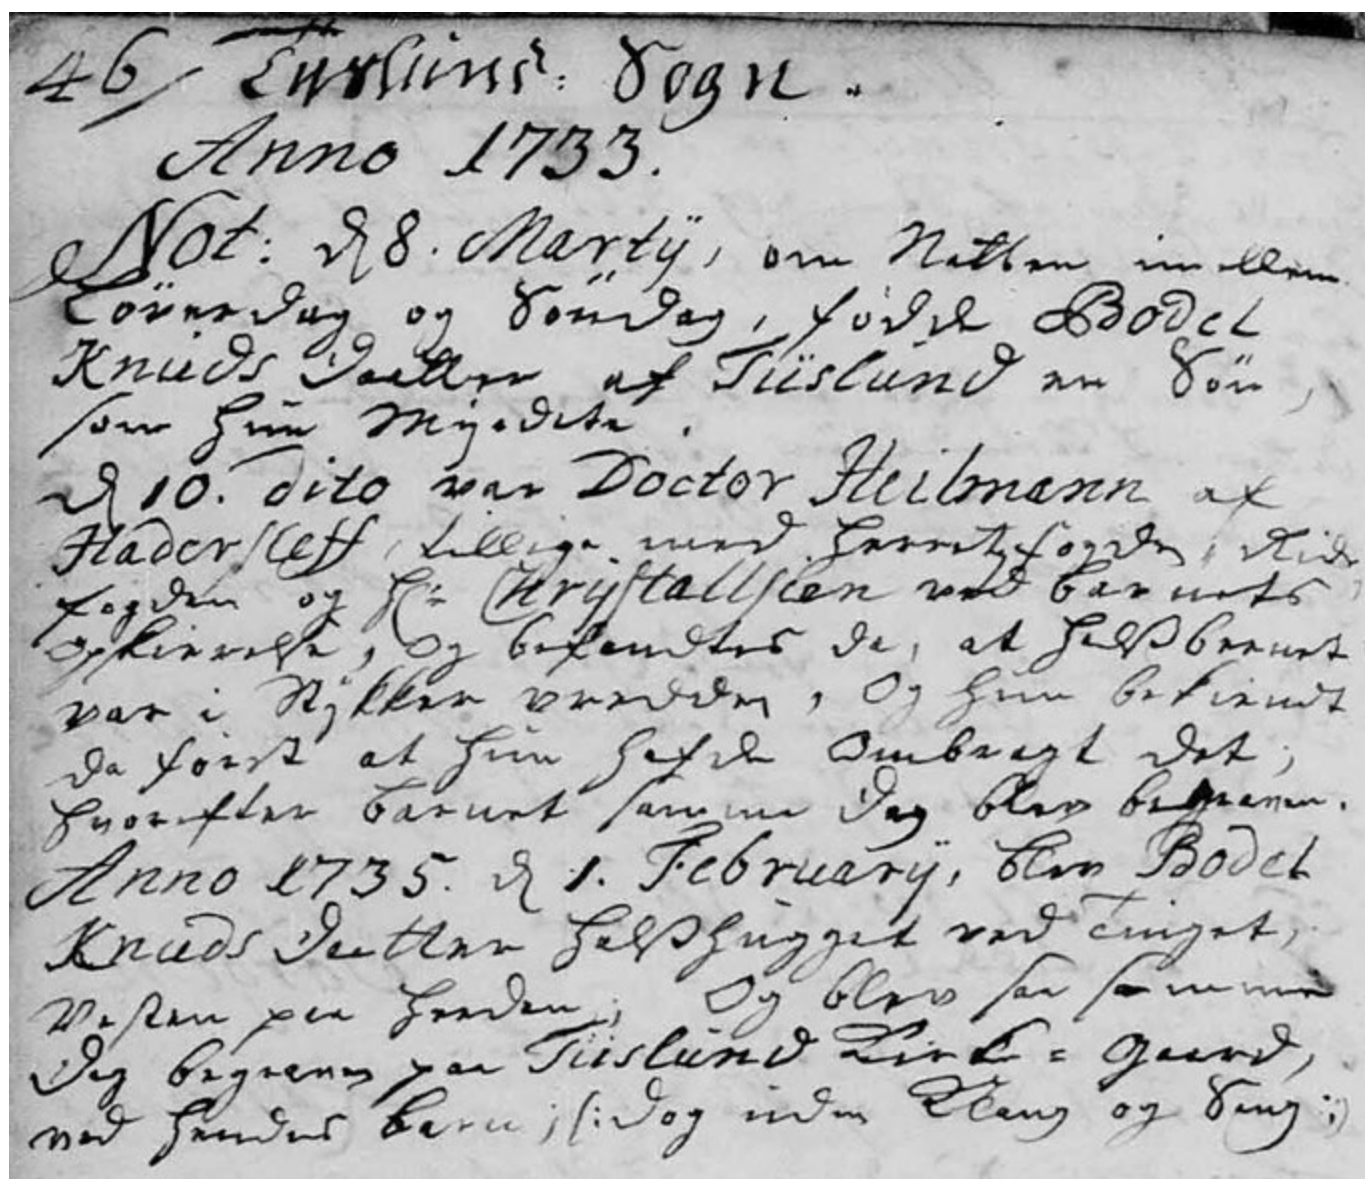 46/ Tüslünds: Sogn.
Anno 1733.
Not: d 8. Martÿ, om Natten imellem
Löverdag og Söndag, födde Bodel
Knüds Daatter af Tüslünd en Sön,
som hün Myrdete.
d 10. dito var Doctor Heilmann af
Hadersleff, tillige med Herretzfogden, Ride
fogden og Hr: Chrystallsien ved barnets
opskierelse, og befandtes da, at halsbeenet
var i Stÿkker vredden, Og hün bekiendt
da först at hün hafde Ombragt det;
hvorefter barnet samme dag blev begraven.
Anno 1735. d 1. Februarÿ, blev Bodel
Knüds Daatter halshügget ved Tinget,
Vesten paa Heeden; Og blev saa samme
dag begraven paa Tüslünd Kirke=gaard,
ved hendes barn; /: dog üden Klang og Sang :/